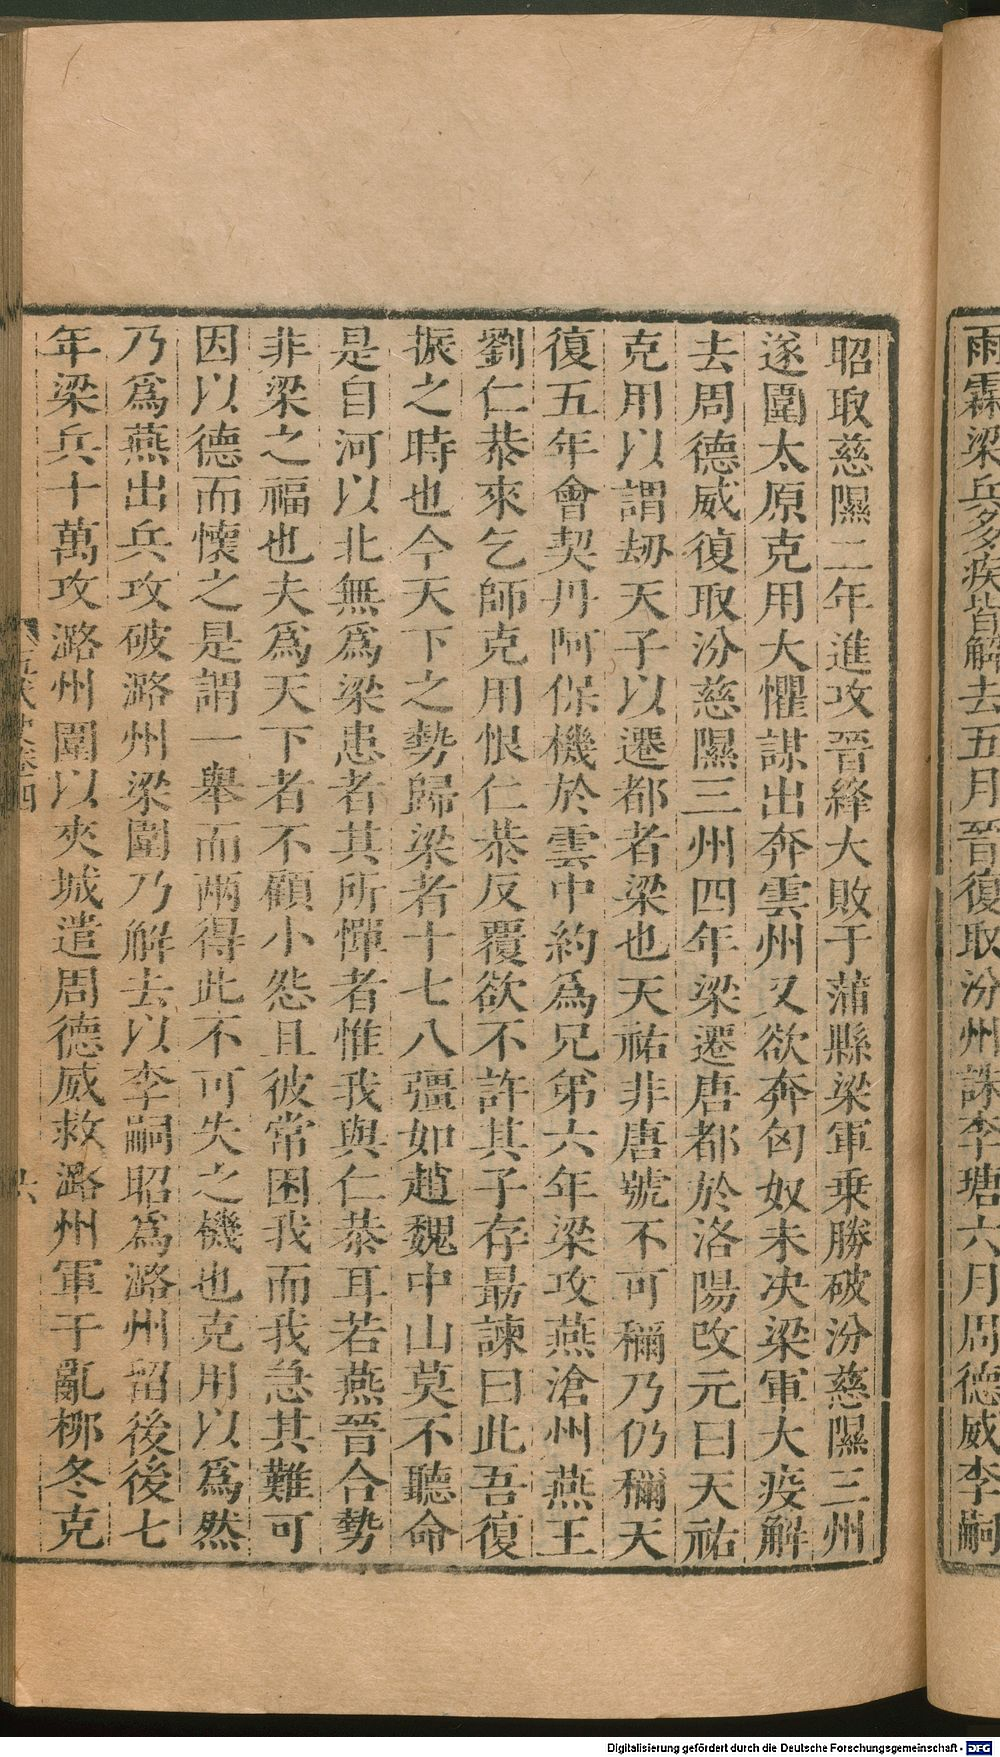 雨霖梁兵多疾皆解去五月晉復取汾州誅李瑭六月周德威李嗣
昭取慈隰二年進攻晉絳大敗于蒲縣梁軍乗勝破汾慈隰三州
遂圍太原克用大懼謀出奔雲州又欲奔匈奴未决梁軍大疫解
去周德威復取汾慈隰三州四年梁遷唐都於洛陽改元曰天祐
克用以謂刼天子以遷都者梁也天祐非唐號不可稱乃仍稱天
復五年會契丹阿保機於雲中約爲兄弟六年梁攻燕滄州燕王
劉仁恭來乞師克用恨仁恭反覆欲不許其子存朂諫曰此吾復
振之時也今天下之勢歸梁者十七八彊如趙魏中山莫不聽命
是自河以北無爲梁患者其所憚者惟我與仁恭耳若燕晉合勢
非梁之福也夫爲天下者不顧小怨且彼常困我而我急其難可
因以德而懷之是謂一舉而兩得此不可失之機也克用以爲然
乃爲燕出兵攻破潞州梁圍乃解去以李嗣昭爲潞州留後後七
年梁兵十萬攻潞州圍以夾城遣周德威救潞州軍于亂柳冬克
五代史卷四
Digitalisierung gefördert durch die Deutsche Forschungsgemeinschaft - DFG